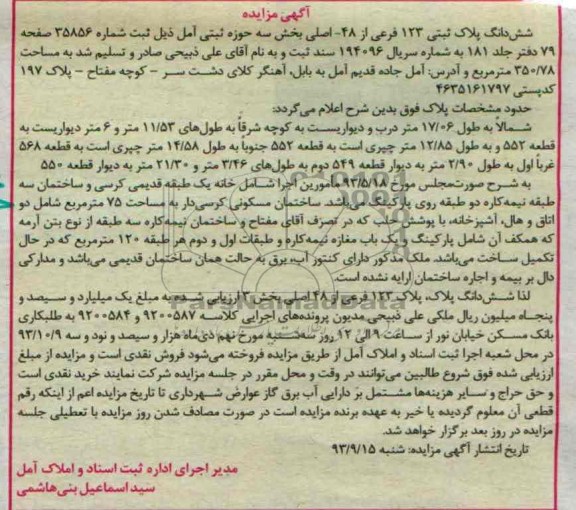 آگهی مزایده
شش‌دانگ پلاک ثبتی ۱۲۳ فرعی از ۴۸- اصلی بخش سه حوزه ثبتی آمل ذیل ثبت شماره ۳۵۸۵۶ صفحه
۷۹ دفتر جلد ۱۸۱ به شماره سریال ۱۹۴۰۹۶ سند ثبت و به نام آقای علی ذبیحی صادر و تسلیم شد به مساحت
۳۵۰/۷۸ مترمربع و آدرس: آمل جاده قدیم آمل به بابل، آهنگر کلای دشت سر - کوچه مفتاح - پلاک ۱۹۷
کدپستی ۴۶۳۵۱۶۱۷۹۷
حدود مشخصات پلاک فوق بدین شرح اعلام می‌گردد:
شمالاً به طول ۱۷/۰۶ متر درب و دیواریست به کوچه شرقاً به طول‌های ۱۱/۵۳ متر و ۶ متر دیواریست به
قطعه ۵۵۲ و به طول ۱۲/۸۵ متر چپری است به قطعه ۵۵۲ جنوباً به طول ۱۴/۵۸ متر چپری است به قطعه ۵۶۸
غرباً اول به طول ۲/۹۰ متر به دیوار قطعه ۵۴۹ دوم به طول‌های ۳/۴۶ متر و ۲۱/۳۰ متر به دیوار قطعه ۵۵۰
به شرح صورت‌مجلس مورخ ۹۳/۵/۱۸ مأمورین اجرا شامل خانه یک طبقه قدیمی کرسی و ساختمان سه
طبقه نیمه‌کاره دو طبقه روی پارکینگ می‌باشد. ساختمان مسکونی کرسی‌دار به مساحت ۷۵ مترمربع شامل دو
اتاق و هال، آشپزخانه، با پوشش حلب که در تصرف آقای مفتاح و ساختمان نیمه‌کاره سه طبقه از نوع بتن آرمه
که همکف آن شامل پارکینگ و یک باب مغازه نیمه‌کاره و طبقات اول و دوم هر طبقه ۱۲۰ مترمربع که در حال
تکمیل ساخت می‌باشد. ملک مذکور دارای کنتور آب، برق به حالت همان ساختمان قدیمی می‌باشد و مدارکی
دال بر بیمه و اجاره ساختمان ارایه نشده است.
لذا شش‌دانگ پلاک، پلاک ۱۲۳ فرعی از ۴۸ اصلی بخش ۳ ارزیابی شده به مبلغ یک میلیارد و سیصد و
پنجاه میلیون ریال ملکی علی ذبیحی مدیون پرونده‌های اجرایی کلاسه ۹۲۰۰۵۸۷ و ۹۲۰۰۵۸۴ به طلبکاری
بانک مسکن خیابان نور از ساعت ۹ الی ۱۲ روز سه‌شنبه مورخ نهم دی‌ماه هزار و سیصد و نود و سه ۹۳/۱۰/۹
در محل شعبه اجرا ثبت اسناد و املاک آمل از طریق مزایده فروخته می‌شود فروش نقدی است و مزایده از مبلغ
ارزیابی شده فوق شروع طالبین می‌توانند در وقت و محل مقرر در جلسه مزایده شرکت نمایند خرید نقدی است
و حق حراج و سایر هزینه‌ها مشتمل بر دارایی آب برق گاز عوارض شهرداری تا تاریخ مزایده اعم از اینکه رقم
قطعی آن معلوم گردیده یا خیر به عهده برنده مزایده است در صورت مصادف شدن روز مزایده با تعطیلی جلسه
مزایده در روز بعد برگزار خواهد شد.
تاریخ انتشار آگهی مزایده: شنبه ۹۳/۹/۱۵
مدیر اجرای اداره ثبت اسناد و املاک آمل
سید اسماعیل بنی‌هاشمی